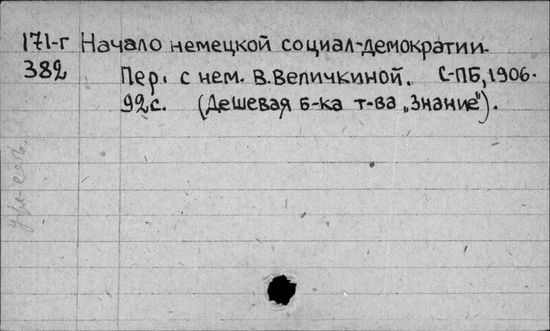 171-г Начало немецкой социал-демократии.
382 Пер. с нем. В. Величкиной. С-ПБ, 1906.
92 с. (Дешевая б-ка т-ва „Знание").